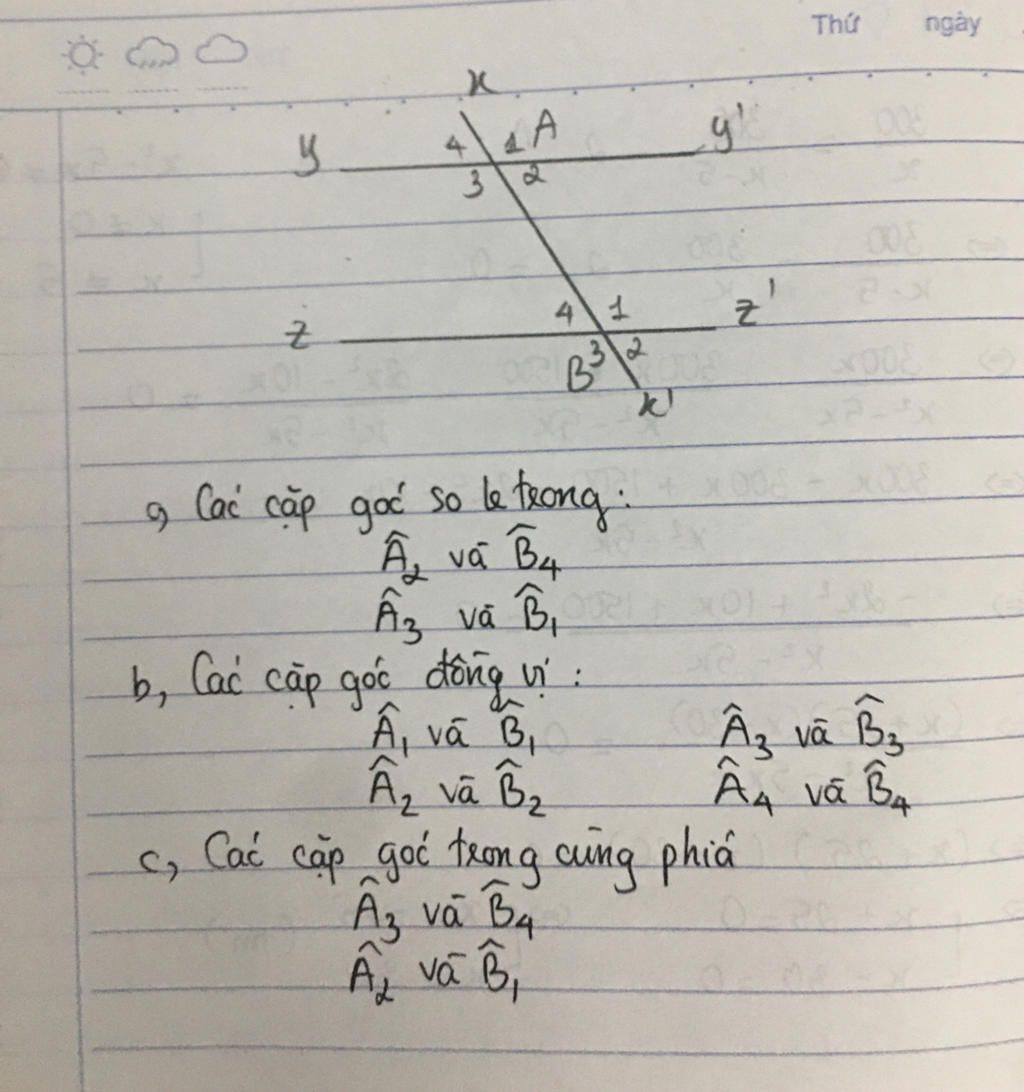 Thứ ngày
x
y 4 1 A y'
3 2
z 4 1 z'
B 3 2
x'
a, Các cặp góc so le trong:
Â₂ và B̂₄
Â₃ và B̂₁
b, Các cặp góc đồng vị:
Â₁ và B̂₁ Â₃ và B̂₃
Â₂ và B̂₂ Â₄ và B̂₄
c, Các cặp góc trong cùng phía
Â₃ và B̂₄
Â₂ và B̂₁